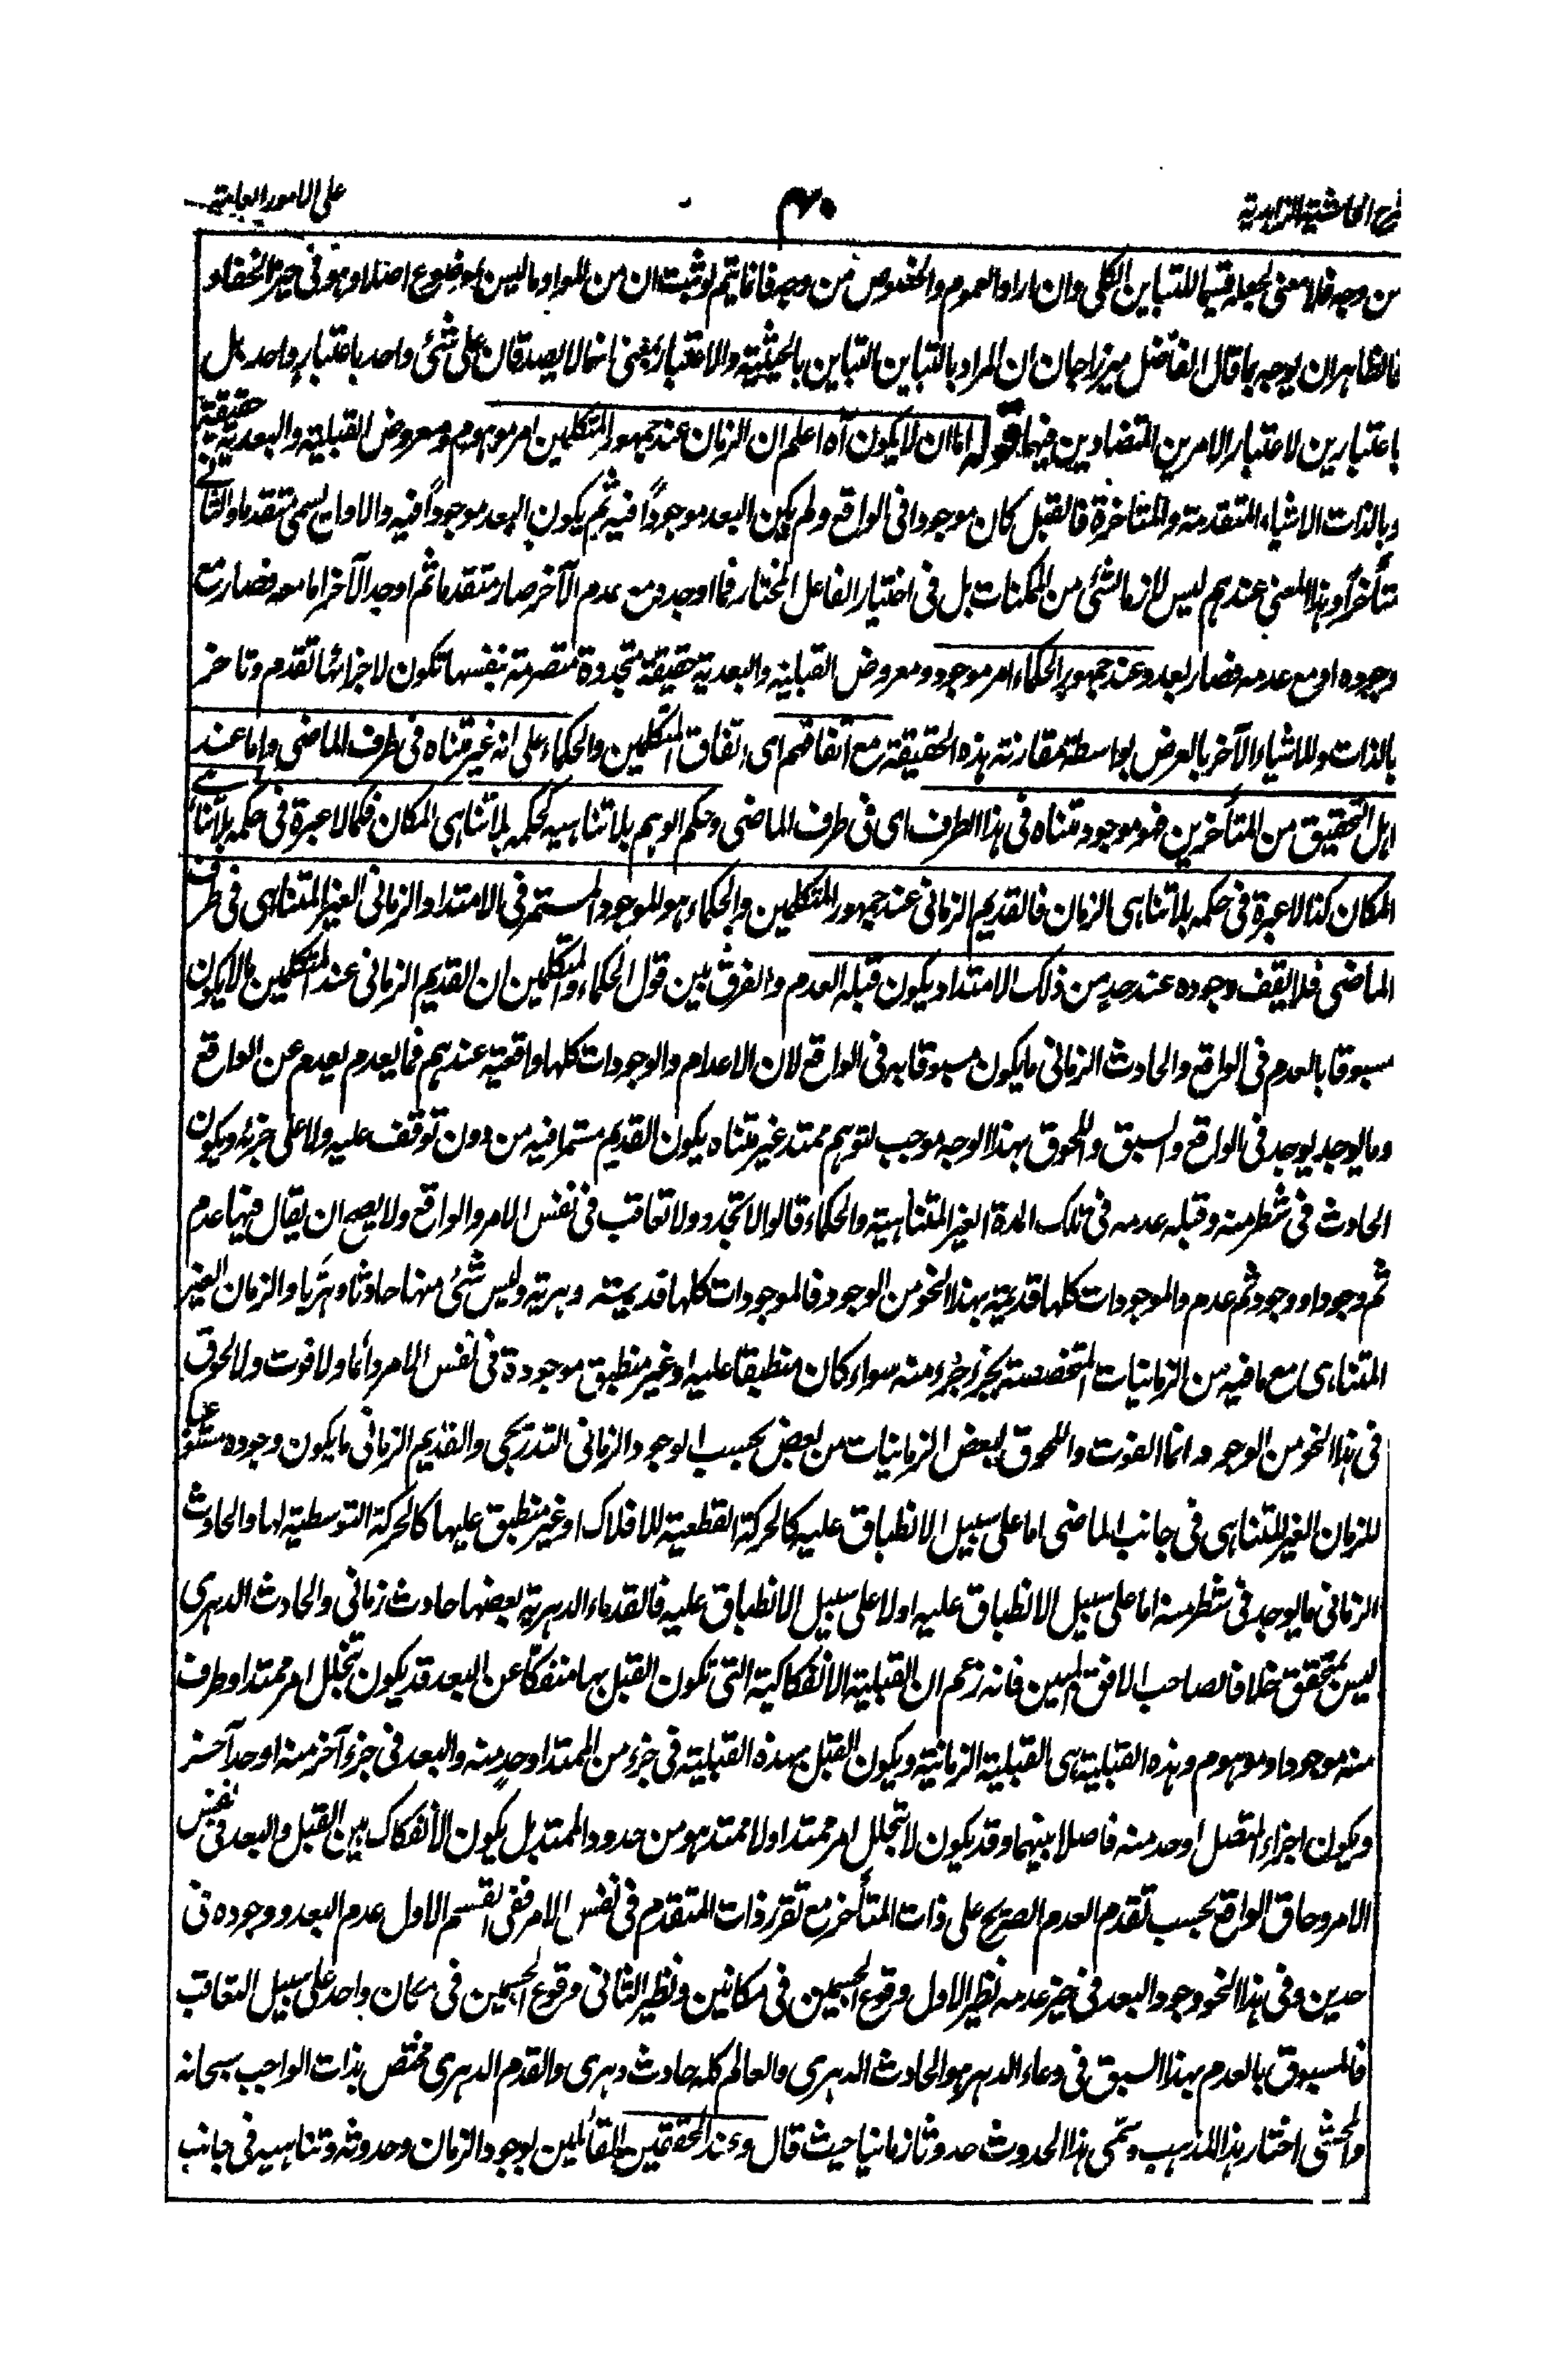 شرح الحاشية الزاهدية
٣٠
على الامور العامة
من وجه فلا معنى لجعله قسيما للتباين الكلى وان اراد العموم والخصوص من وجه فانما يتم لو ثبت ان من المواد ما ليس له موضوع اصلا وهو فى حيز الخفاء و
فالظاهر ان يوجه بما قال الفاضل ميرزا جان ان المراد بالتباين التباين بالحيثية والاعتبار بمعنى انهما لا يصدقان على شئ واحد باعتبار واحد بل
باعتبارين لاعتبار الامرين المتضادين فيهما قوله اما ان لا يكون آه اعلم ان الزمان عند جمهور المتكلمين امر موهوم ومعروض القبلية والبعدية حقيقة
وبالذات الاشياء المتقدمة والمتاخرة فالقبل كان موجودا فى الواقع ولم يكن البعد موجودًا فيه ثم يكون البعد موجودًا فيه والاول يسمى متقدما والثانى
متأخرًا وهذا المعنى عندهم ليس لازما لشئ من الممكنات بل فى اختيار الفاعل المختار فما اوجده مع عدم الآخر صار متقدما ثم اوجد الآخر اما معه فصار مع
وجوده او مع عدمه فصار بعده وعند جمهور الحكماء امر موجود ومعروض القبلية والبعدية حقيقة متجددة متصرمة بنفسها تكون لاجزائها تقدم وتاخر
بالذات وللاشياء الآخر بالعرض بواسطة مقارنته هذه الحقيقة مع اتفاقهم اى اتفاق المتكلمين والحكماء على انه غير متناه فى طرف الماضى واما عند
اهل التحقيق من المتأخرين فهو موجود متناه فى هذا الطرف اى فى طرف الماضى وحكم الوهم بلا تناهيه كحكمه بلا تناهى المكان فكما لا عبرة فى حكمه بلا تناهى
المكان كذا لا عبرة فى حكمه بلا تناهى الزمان فالقديم الزمانى عند جمهور المتكلمين والحكماء هو الموجود المستمر فى الامتداد الزمانى الغير المتناهى فى طرف
الماضى فلا يقف وجوده عند حد من ذلك الامتداد يكون قبله العدم والفرق بين قول الحكماء والمتكلمين ان القديم الزمانى عند المتكلمين ما لا يكون
مسبوقا بالعدم فى الواقع والحادث الزمانى ما يكون مسبوقا به فى الواقع لان الاعدام والوجودات كلها واقعية عندهم فما يعدم يعدم عن الواقع
وما يوجد يوجد فى الواقع والسبق واللحوق بهذا الوجه موجب لتوهم ممتد غير متناه يكون القديم مستمرا فيه من دون توقف عليه ولا على جزئه ويكون
الحادث فى شطر منه وقبله عدمه فى تلك المدة الغير المتناهية والحكماء قالوا لا تجدد ولا تعاقب فى نفس الامر والواقع ولا يصح ان يقال فيها عدم
ثم وجود او وجود ثم عدم والموجودات كلها قديمة بهذا النحو من الوجود فالموجودات كلها قديمة دهرية وليس شئ منها حادثا دهريا والزمان الغير
المتناهى مع ما فيه من الزمانيات المتخصصة بجزء جزء منه سواء كان منطبقا عليه او غير منطبق موجودة فى نفس الامر دائما ولا فوت ولا لحوق
فى هذا النحو من الوجود وانما الفوت واللحوق لبعض الزمانيات من بعض بحسب الوجود الزمانى التدريجى والقديم الزمانى ما يكون وجوده مستوعبا
للزمان الغير المتناهى فى جانب الماضى اما على سبيل الانطباق عليه كالحركة القطعية للافلاك او غير منطبق عليها كالحركة التوسطية لها والحادث
الزمانى ما يوجد فى شطر منه اما على سبيل الانطباق عليه او لا على سبيل الانطباق عليه فالقدماء الدهرية بعضها حادث زمانى والحادث الدهرى
ليس بمتحقق خلافا لصاحب الافق المبين فانه زعم ان القبلية الانفكاكية التى تكون القبل بها منفكا عن البعد قد يكون بتخلل امر ممتد او طرف
منه موجود او موهوم وهذه القبلية هى القبلية الزمانية ويكون القبل بهذه القبلية فى جزء من الممتد او حد منه والبعد فى جزء آخر منه او حد آخر
ويكون اجزاء المتصل او حد منه فاصلا بينهما وقد يكون لا بتخلل امر ممتد او لا ممتد هو من حدود الممتد بل يكون الانفكاك بين القبل والبعد فى نفس
الامر وحاق الواقع بحسب تقدم العدم الصريح على ذات المتأخر مع تقرر ذات المتقدم فى نفس الامر ففى القسم الاول عدم البعد ووجوده فى
حدين وفى هذا النحو وجود البعد فى حيز عدمه نظير الاول وقوع الجسمين فى مكانين ونظير الثانى وقوع الجسمين فى مكان واحد على سبيل التعاقب
فالمسبوق بالعدم بهذا السبق فى وعاء الدهر هو الحادث الدهرى والعالم كله حادث دهرى والقدم الدهرى مختص بذات الواجب سبحانه
والمحشى اختار هذا المذهب وسمى هذا الحدوث حدوثا زمانيا حيث قال وعند المحققين القائلين بوجود الزمان وحدوثه وتناهيه فى جانب